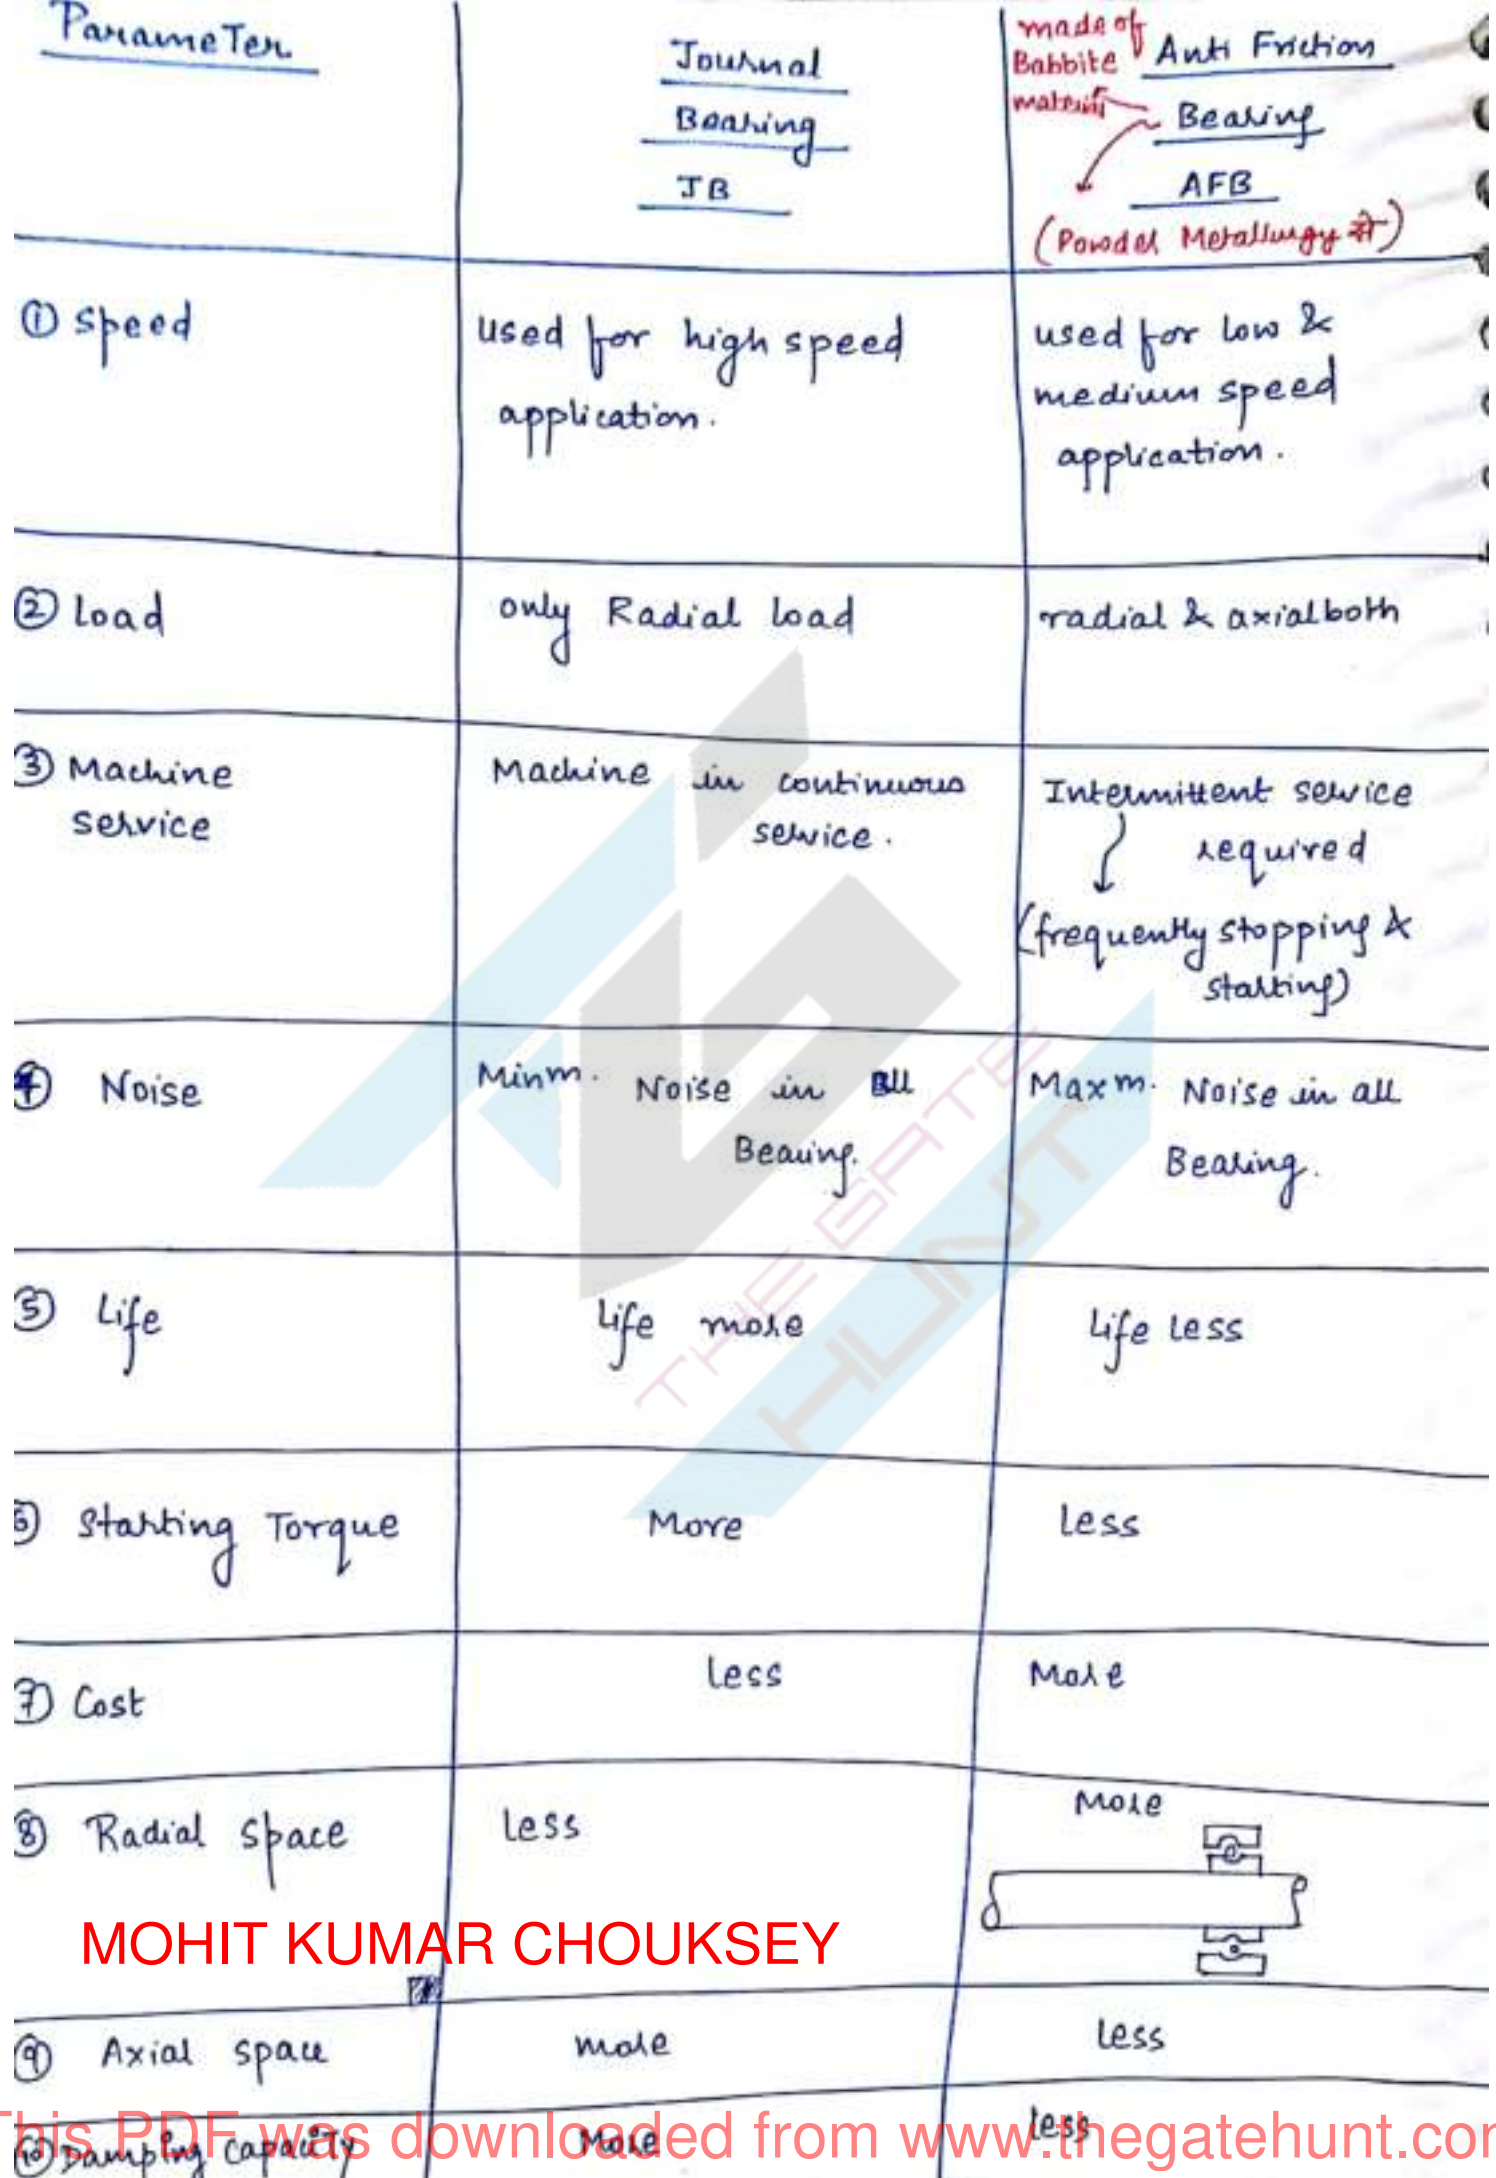 Parameter
Journal
Bearing
JB
made of
Babbite
material
Anti Friction
Bearing
AFB
(Powder Metallurgy से)
① Speed
used for high speed
application.
used for low &
medium speed
application.
② Load
only Radial load
radial & axial both
③ Machine
service
Machine in continuous
service.
Intermittent service
required
(frequently stopping &
starting)
④ Noise
Minm. Noise in all
Bearing.
Maxm. Noise in all
Bearing.
⑤ Life
Life more
Life less
⑥ Starting Torque
More
Less
⑦ Cost
Less
More
⑧ Radial space
Less
More
MOHIT KUMAR CHOUKSEY
⑨ Axial space
more
Less
⑩ Damping capacity
More
less
This PDF was downloaded from www.thegatehunt.com
THE GATE
HUNT